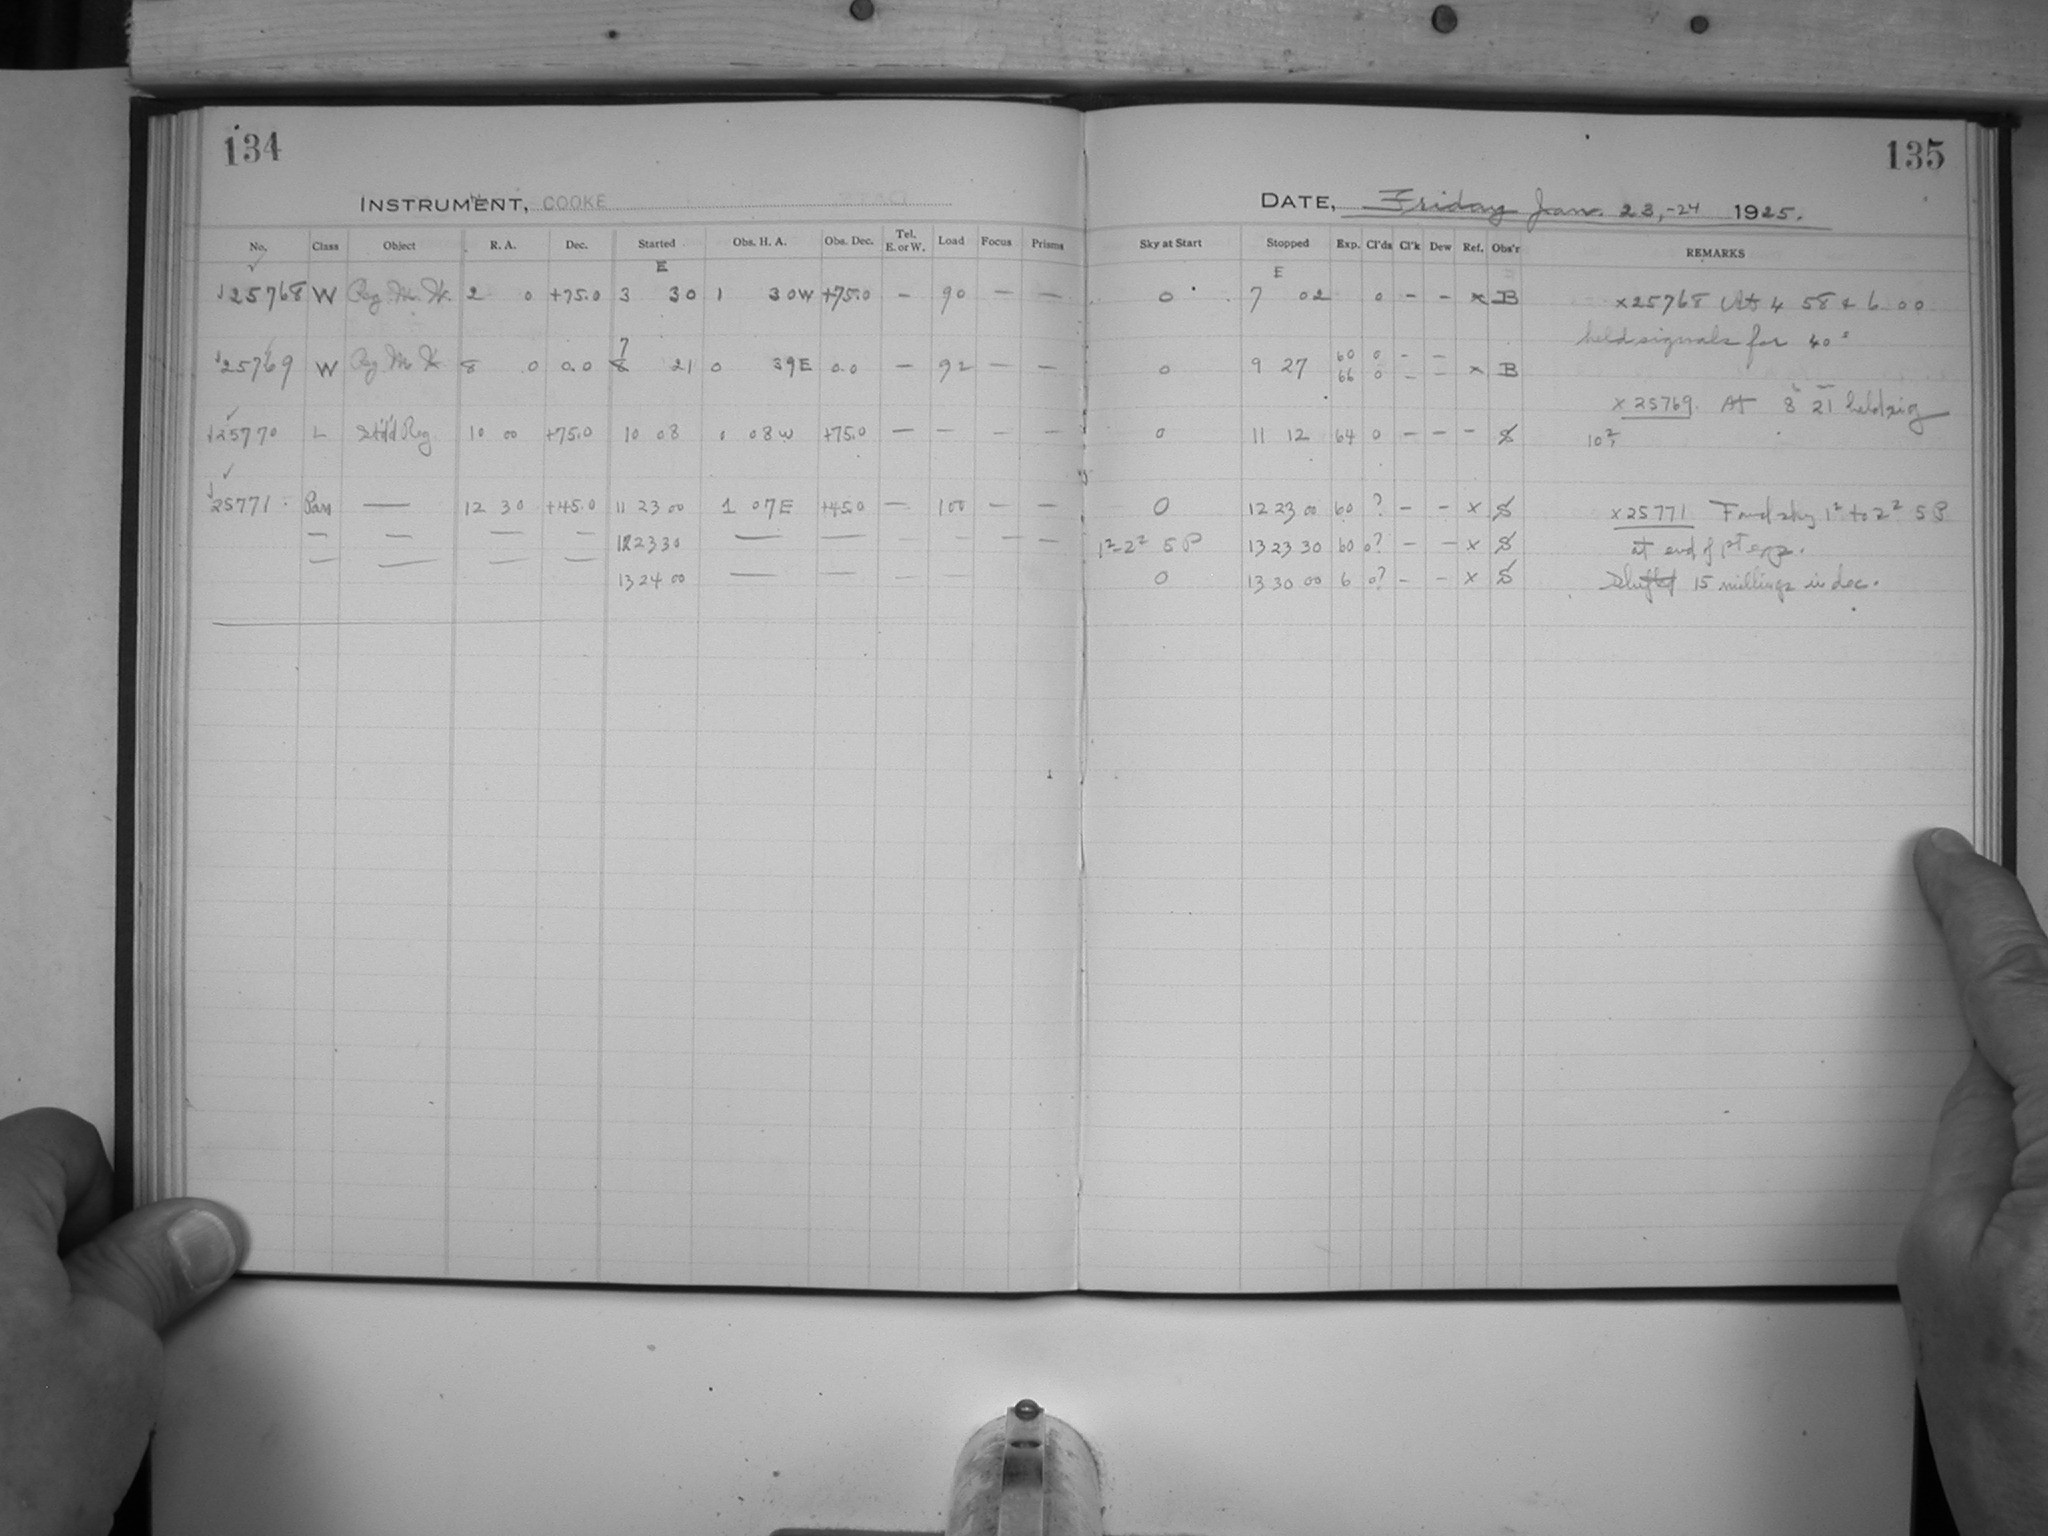 134
135
INSTRUMENT, COOKE
DATE, Friday Jan. 23,-24 1925.
No. Class Object R. A. Dec. Started Obs. H. A. Obs. Dec. Tel. E. or W. Load Focus Prisms Sky at Start Stopped Exp. Cl'ds Cl'k Dew Ref. Obs'r REMARKS
E E
25768 W 2 0 +75.0 3 30 1 30W +75.0 – 90 – – 0 7 02 0 – – x B x25768 At 4 58 & 6 00
held signals for 40s
7 60 0 – –
25769 W 8 0 0.0 8 21 0 39E 0.0 – 92 – – 0 9 27 66 0 – – x B
x 25769. At 8 21 held sig
25770 L Std'd Reg 10 00 +75.0 10 08 0 08W +75.0 – – – – 0 11 12 64 0 – – – S
25771 12 30 +45.0 11 23 00 1 07E +45.0 – 100 – – 0 12 23 00 60 ? – – x S x25771 Found sky 1² to 2² 5 P
– – – – 12 23 30 – – – – – – 1²-2² 5 P 13 23 30 60 0? – – x S at end of 1st exp.
– – – – 13 24 00 – – – – 0 13 30 00 6 0? – – x S Shifted 15 millings in dec.